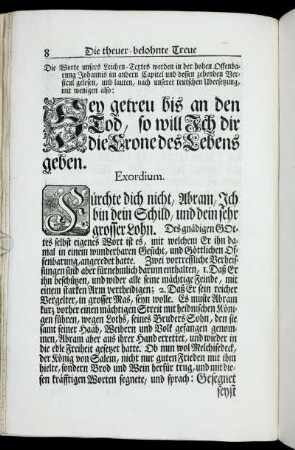 8 Die theuer-belohnte Treue
Die Worte unsers Leichen-Textes werden in der hohen Offenba-
rung Johannis im andern Capitel und dessen zehenden Ver-
sicul gelesen, und lauten, nach unserer teutschen Übersetzung,
mit wenigen also:
Sey getreu bis an den
Tod, so will Ich dir
die Crone des Lebens
geben.
Exordium.
Fürchte dich nicht, Abram, Ich
bin dein Schild, und dein sehr
grosser Lohn. Des gnädigen GOt-
tes selbst eigenes Wort ist es, mit welchem Er ihn da-
mal in einem wunderbaren Gesicht, und Göttlichen Of-
fenbarung, angeredet hatte. Zwei vortreffliche Verheis-
sungen sind aber fürnehmlich darinn enthalten, 1. Das Er
ihn beschützen, und wider alle seine mächtige Feinde, mit
einem starken Arm vertheidigen; 2. Das Er sein reicher
Vergelter, in grosser Mas, seyn wolle. Es muste Abram
kurz vorher einen mächtigen Streit mit heidnischen Köni-
gen führen, wegen Loths, seines Bruders Sohn, den sie
samt seiner Haab, Weibern und Volk gefangen genom-
men, Abram aber aus ihrer Hand errettet, und wieder in
die edle Freiheit gesetzt hatte. Ob nun wol Melchisedeck,
der König von Salem, nicht nur guten Frieden mit ihm
hielte, sondern Brod und Wein herfür trug, und mit die-
sen kräfftigen Worten segnete, und sprach: Gesegnet
seyst